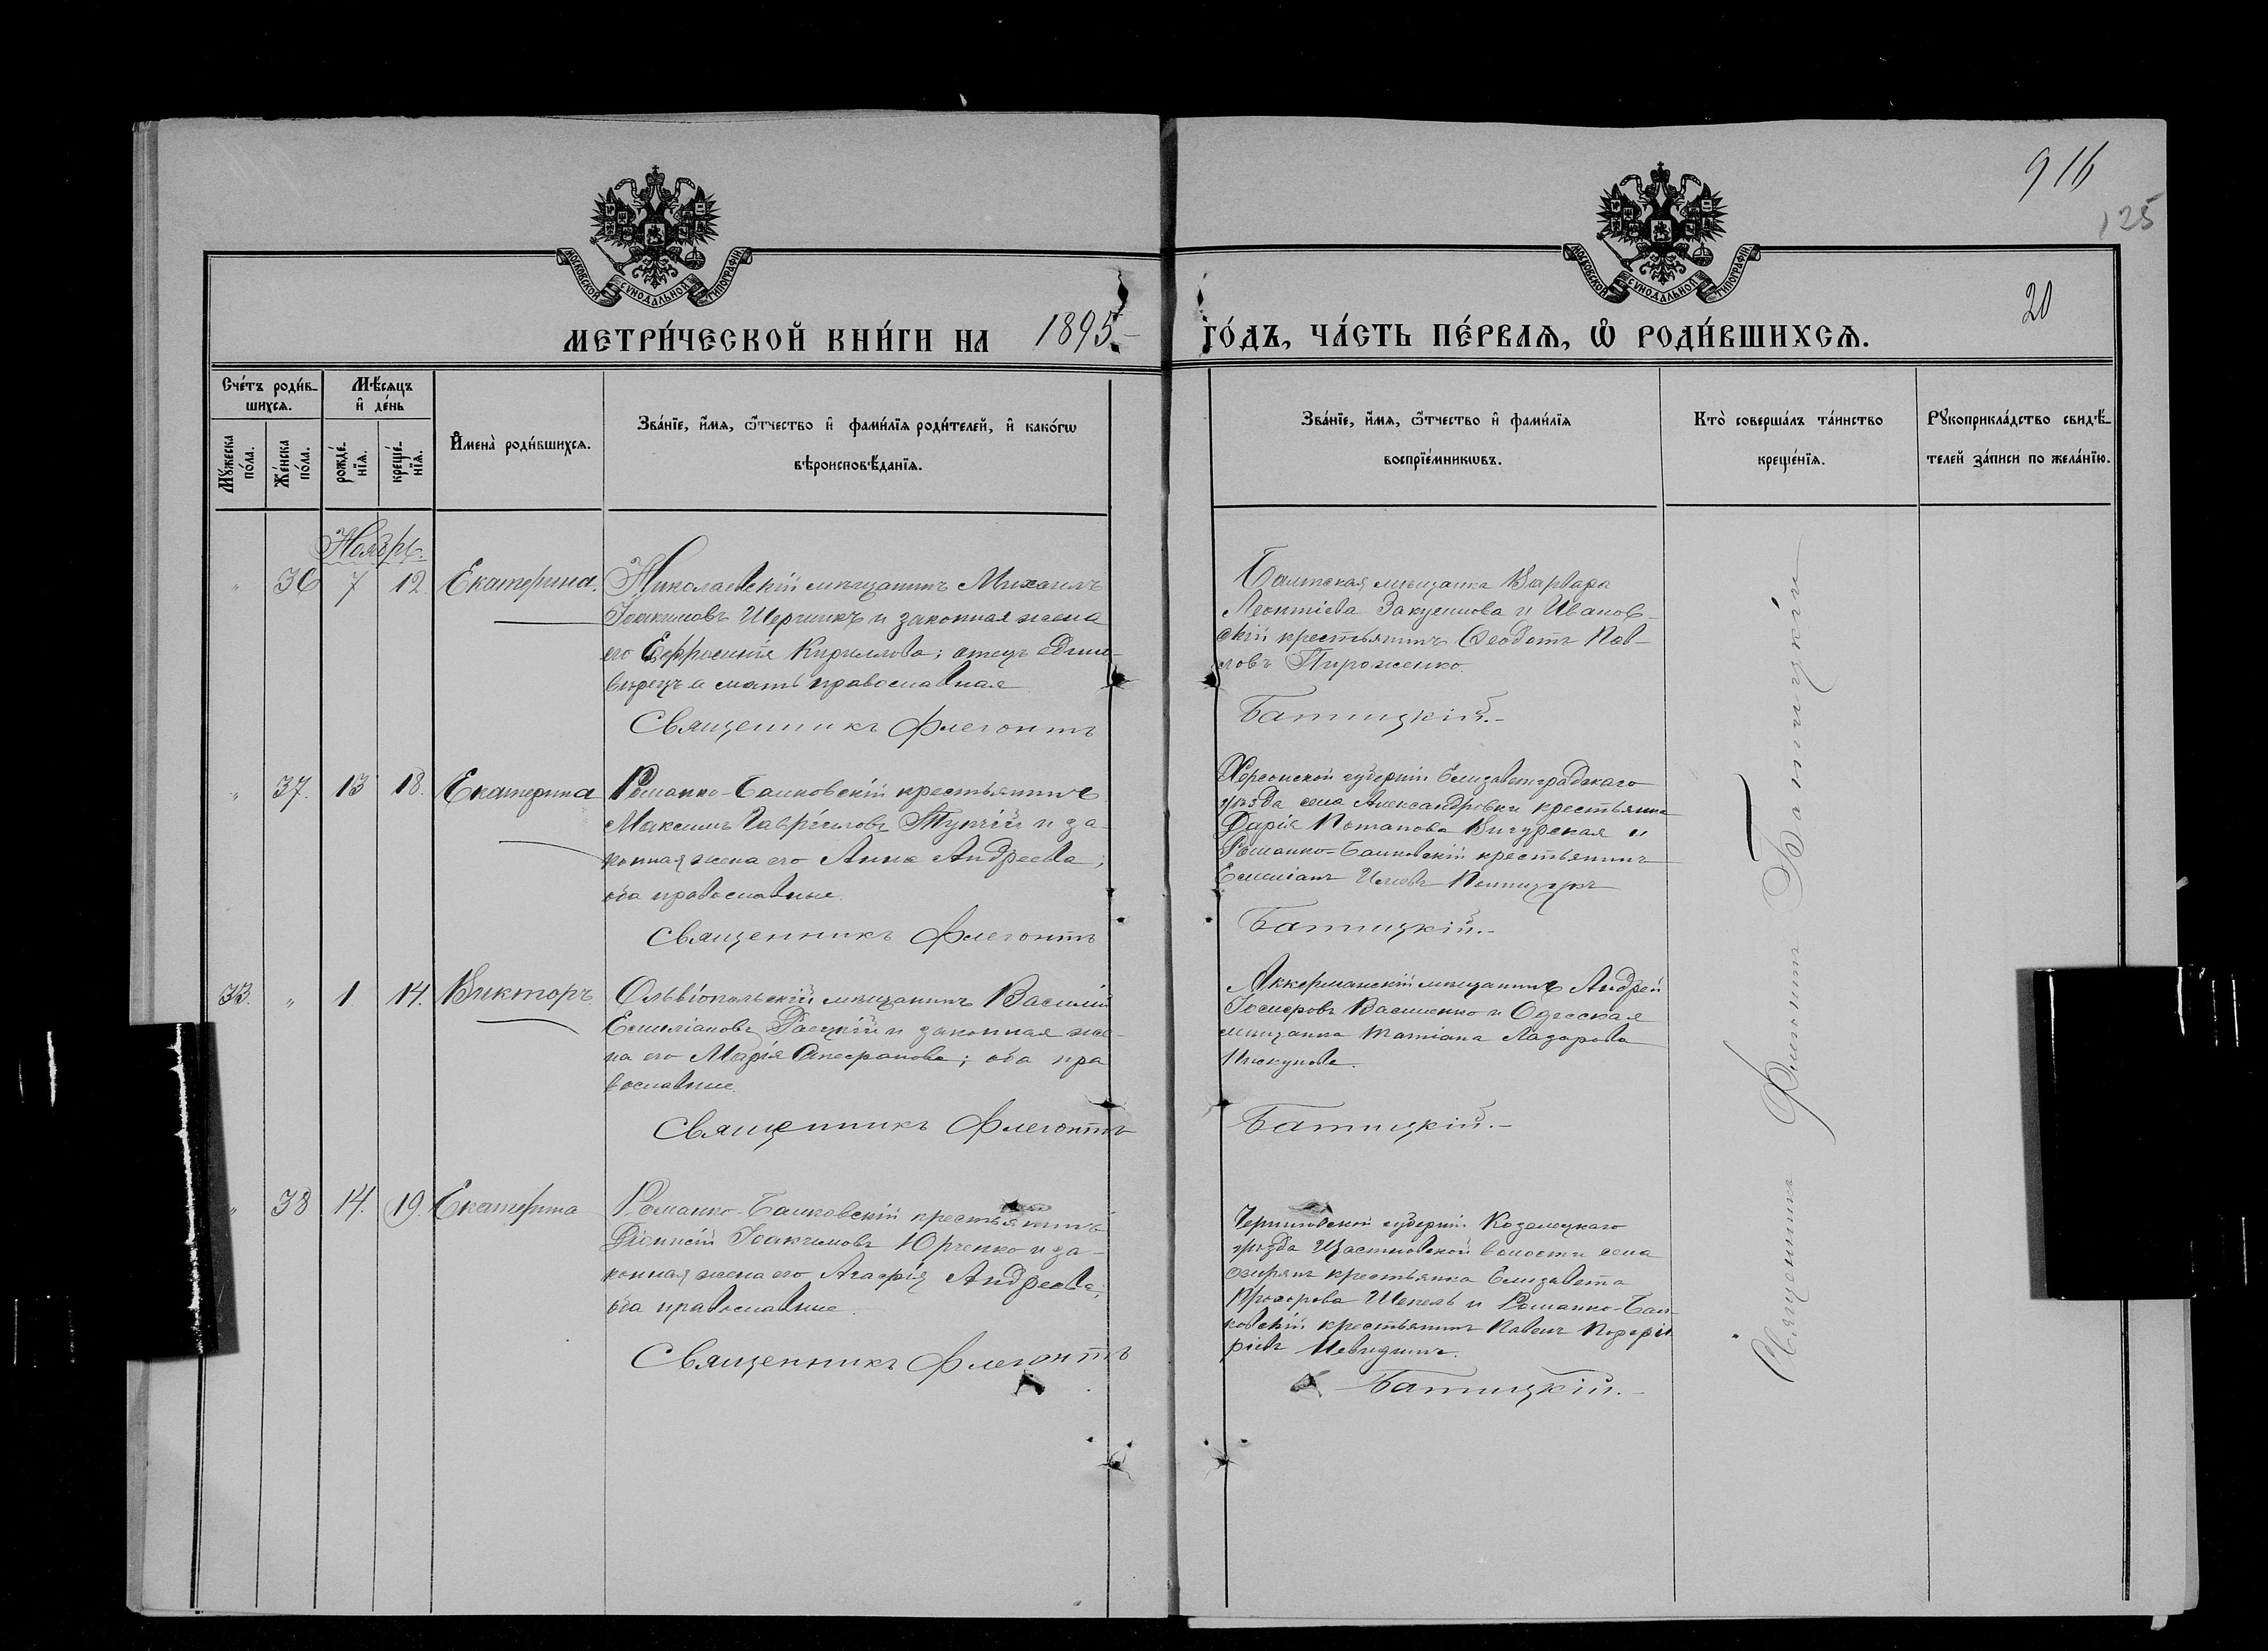 916
125
МОСКОВСКОЙ СѴНОДАЛЬНОЙ ТИПОГРАФІИ
МОСКОВСКОЙ СѴНОДАЛЬНОЙ ТИПОГРАФІИ
20
МЕТРИ́ЧЕСКОЙ КНИ́ГИ НА 1895
ГО́ДЪ, ЧА́СТЬ ПЕ́РВАѦ, Ѿ РОДИ́ВШИХСѦ.
Сче́тъ роди́в-
шихсѧ.
Мꙋ́жеска
по́ла.
Же́нска
по́ла.
Мѣ́сѧцъ
и҆ де́нь
рожде́-
нїѧ.
креще́-
нїѧ.
И҆мена̀ роди́вшихсѧ.
Зва́нїе, и҆́мѧ, ѻ҆́тчество и҆ фами́лїѧ роди́телей, и҆ како́гѡ
вѣроисповѣ́данїѧ.
Зва́нїе, и҆́мѧ, ѻ҆́тчество и҆ фами́лїѧ
воспрїе́мникѡвъ.
Кто̀ соверша́лъ та́инство
креще́нїѧ.
Рꙋкоприкла́дство свидѣ́-
телей за́писи по жела́нїю.
Ноябрь.
" 36 7 12. Екатерина.
Николаевскій мѣщанинъ Михаилъ
Іоакимовъ Шерчикъ и законная жена
его Евфросинія Кириллова; отецъ едино-
вѣрецъ а мать православная
Священникъ Флегонтъ
Балтская мѣщанка Варвара
Леонтіева и Иванов-
скій крестьянинъ Ѳеодотъ Пав-
ловъ Пироженко.
Батицкій.-
" 37. 13 18. Екатерина
Романко-Балковскій крестьянинъ
Максимъ Гавріиловъ Тупчій и за-
конная жена его Анна Андреева;
оба православные.
Священникъ Флегонтъ
Херсонской губерніи Елизаветградскаго
уѣзда села Александровки крестьянка
Дарія Потапова и
Романко-Балковскій крестьянинъ
Емиліанъ
Батицкій.-
33. " 1 14. Викторъ
Ольвіопольскій мѣщанинъ Василій
Емиліановъ Раецкій и законная же-
на его Марія; оба пра
вославные.
Священникъ Флегонтъ
Аккерманскій мѣщанинъ Андрей
Іосифовъ Василенко и Одесская
мѣщанка Татіана Лазарова
Пискунова.
Батицкій.-
" 38 14. 19. Екатерина
Романко-Балковскій крестьянинъ
Діонисій Іоакимовъ Юрченко и за-
конная жена его Агафія Андреева;
оба православные.
Священникъ Флегонтъ
Черниговской губерніи Козелецкаго
уѣзда волости села
крестьянка Елизавета
Прохорова Шепель и Романко-Бал-
ковскій крестьянинъ Павелъ
Батицкій.-
Священникъ Флегонтъ Батицкій